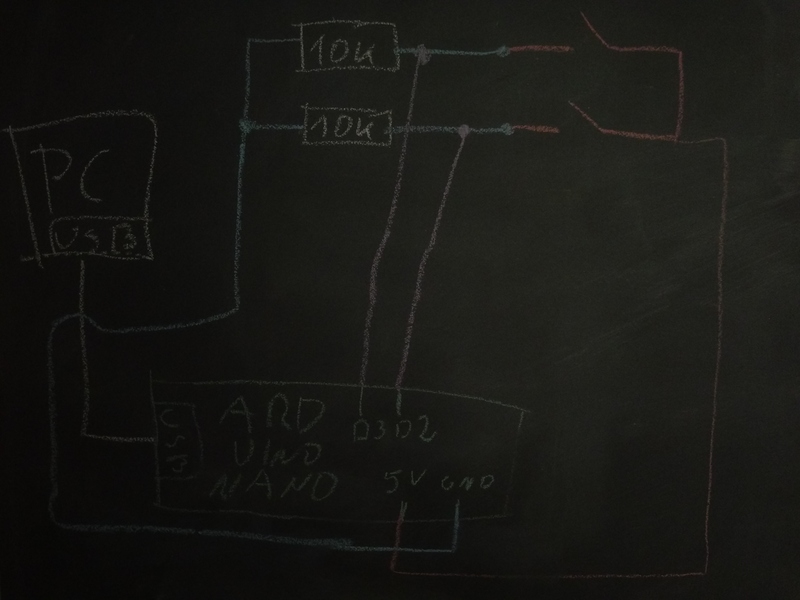 10K
10K
PC
USB
USB
ARD
UINO
NANO
D3 D2
5V GND